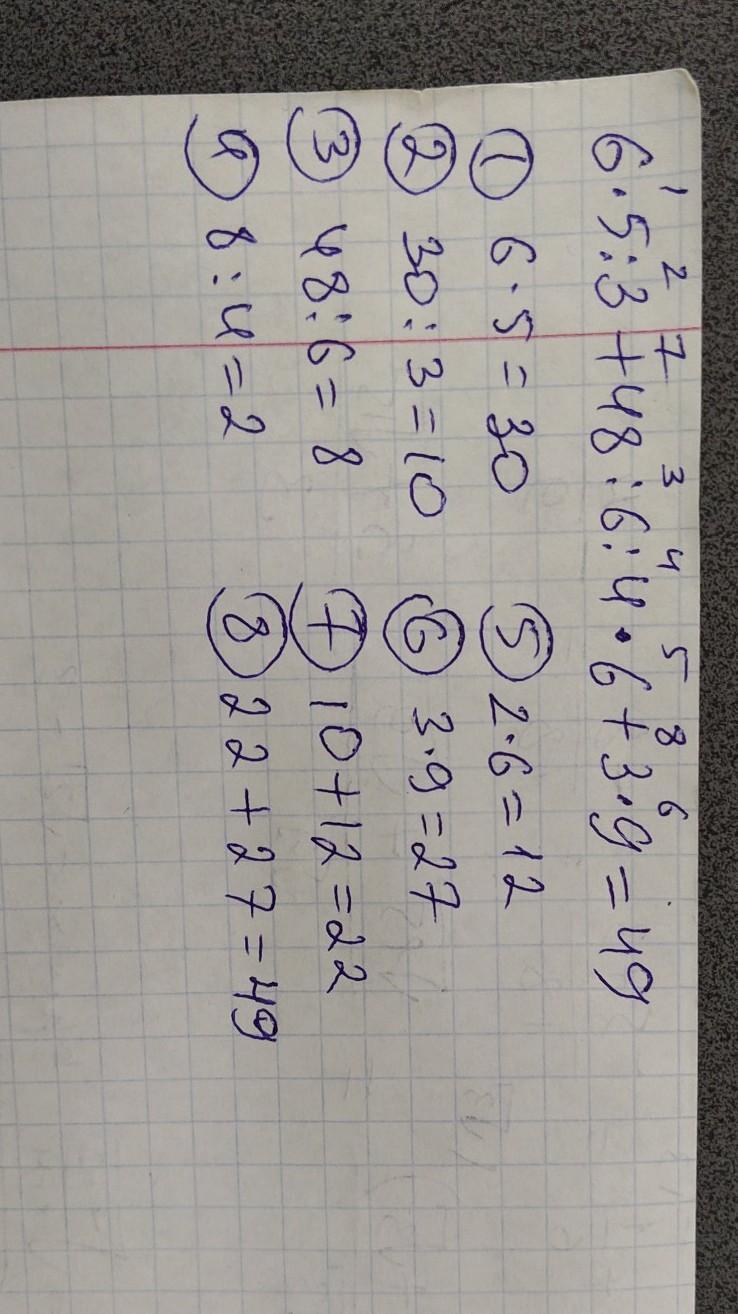 1 2 7 3 4 5 8 6
6·5:3+48:6:4·6+3·9=49
① 6·5=30
② 30:3=10
③ 48:6=8
④ 8:4=2
⑤ 2·6=12
⑥ 3·9=27
⑦ 10+12=22
⑧ 22+27=49